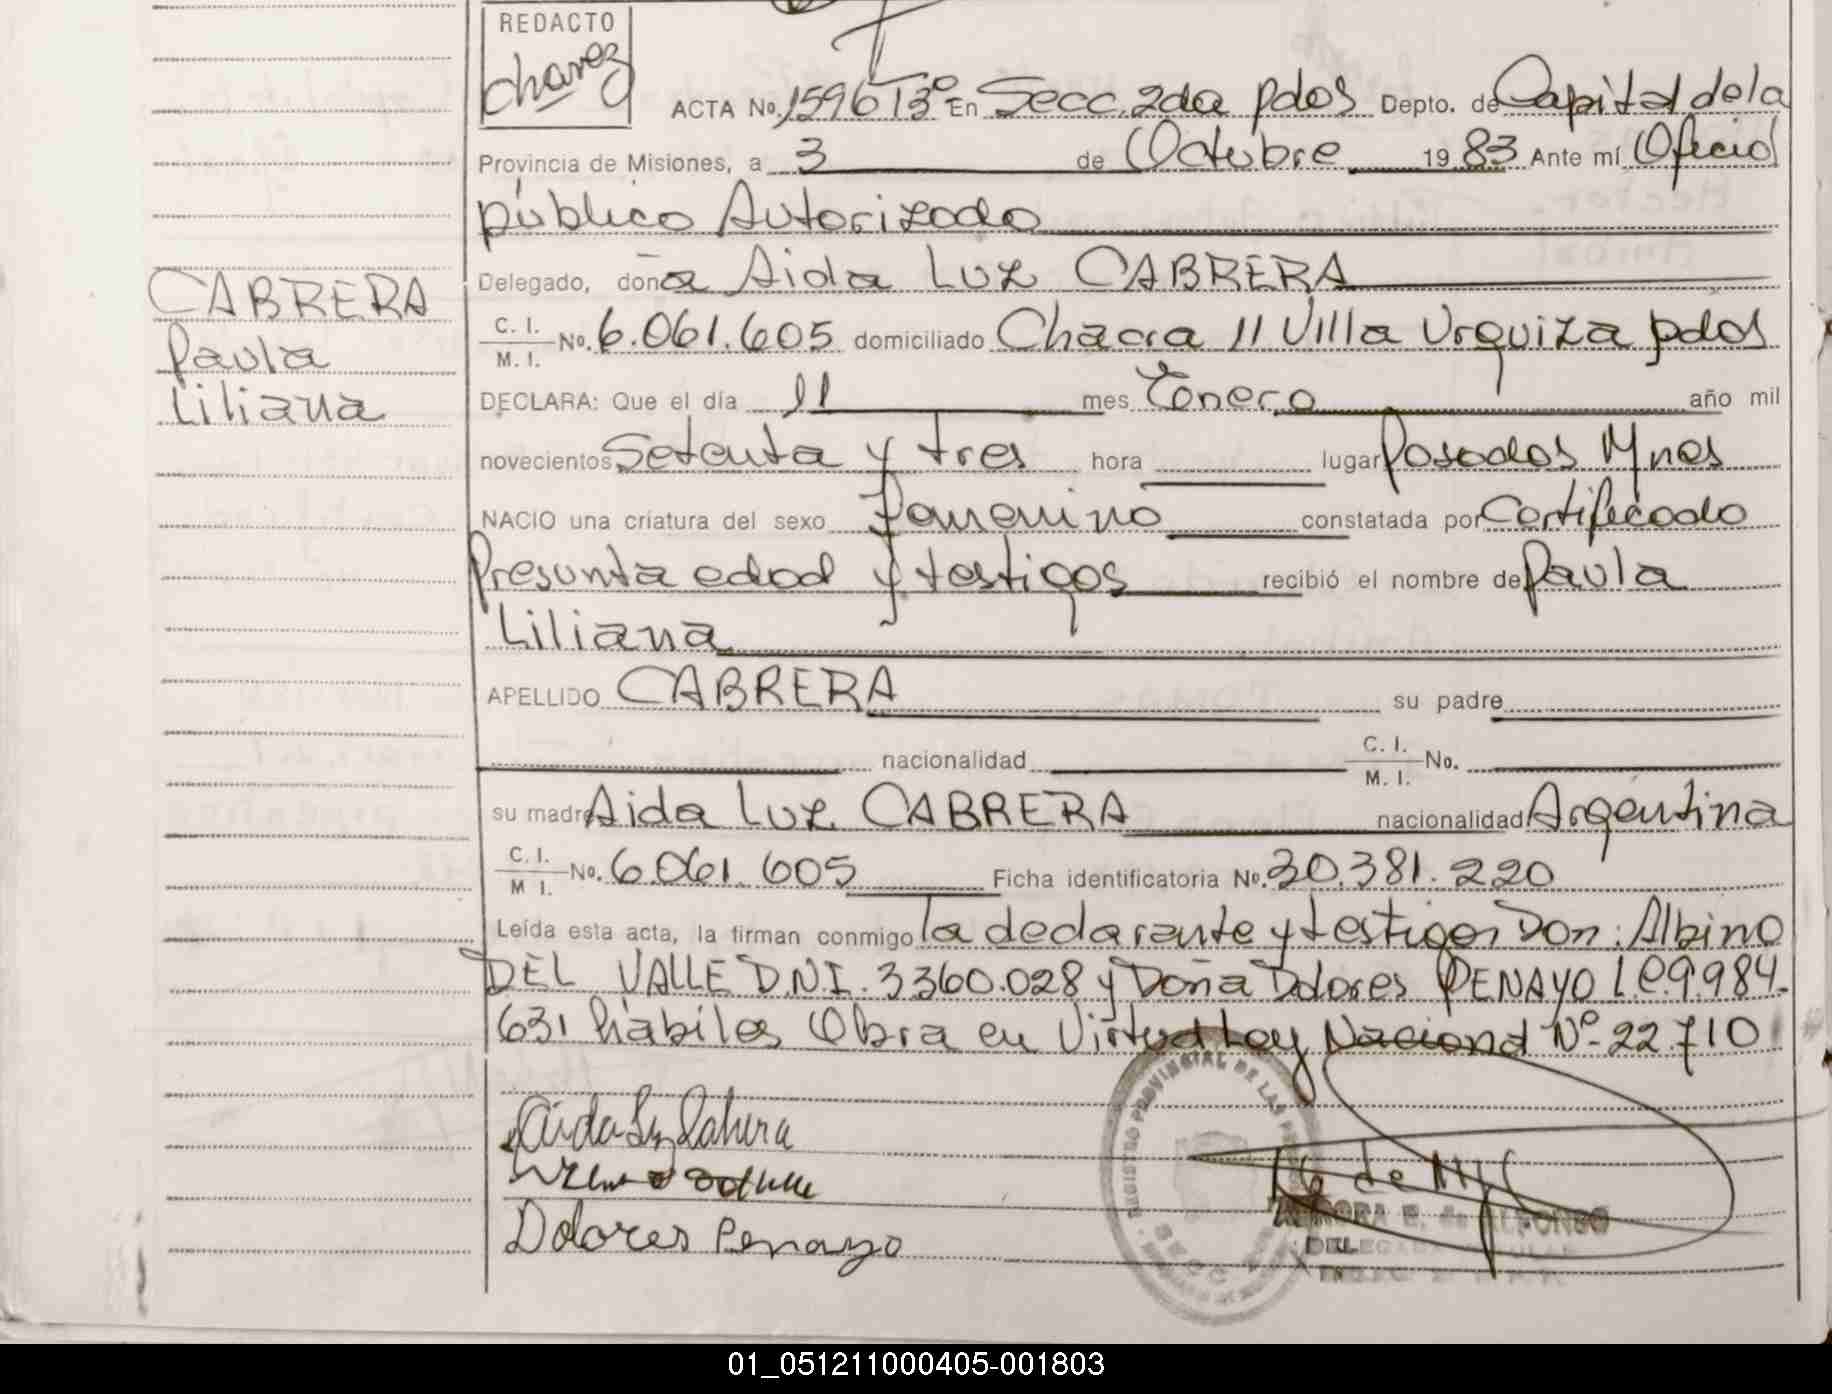 REDACTO
chavez
ACTA No. 1596 T3º En Secc. 2da pdas Depto. de Capital de la
Provincia de Misiones, a 3 de Octubre 19 83 Ante mí Oficial
público Autorizado
Delegado, doña Aida Luz CABRERA
CABRERA
Paula
Liliana
C. I.
M. I. No. 6.061.605 domiciliado Chacra 11 Villa Urquiza pdas
DECLARA: Que el día 11 mes Enero año mil
novecientos Setenta y tres hora lugar Posadas Mnes
NACIO una criatura del sexo Femenino constatada por Certificado
Presunta edad y testigos recibió el nombre de Paula
Liliana
APELLIDO CABRERA su padre
nacionalidad C. I.
M. I. No.
su madre Aida Luz CABRERA nacionalidad Argentina
C. I.
M I. No. 6.061.605 Ficha identificatoria No. 30.381.220
Leída esta acta, la firman conmigo la declarante y testigos Don: Albino
DEL VALLE D.N.I. 3360.028 y Doña Dolores PENAYO L.C. 9.984.
631 hábiles Obra en Virtud Ley Nacional Nº 22.710
Aida Luz Cabrera
Dolores Penayo
REGISTRO PROVINCIAL DE LAS
AURORA E. de ALFONSO
01_051211000405-001803